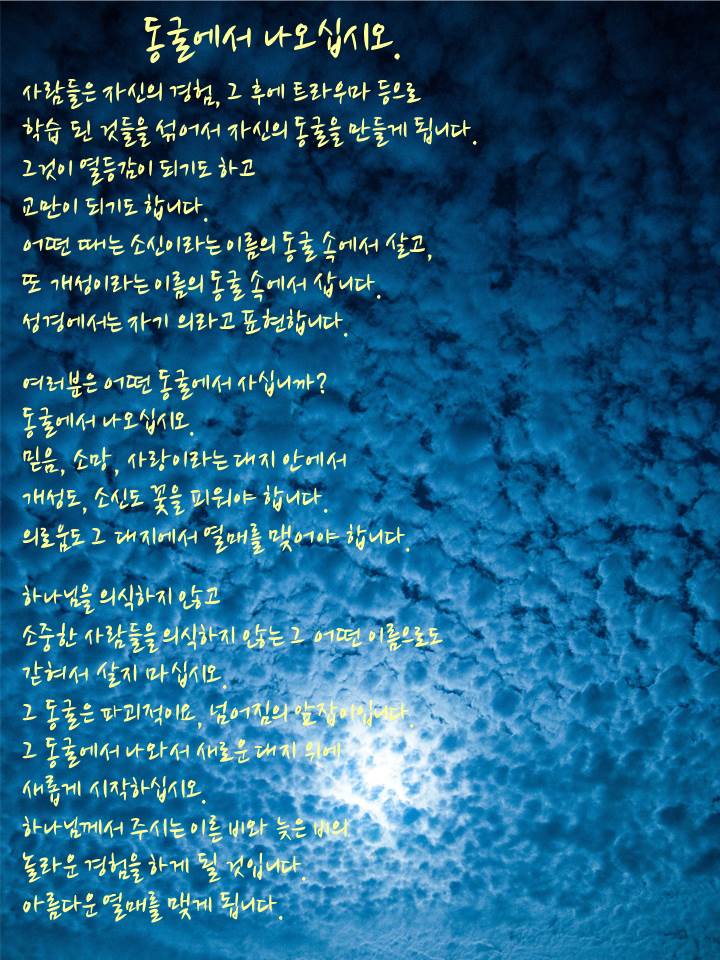 동굴에서 나오십시오.
사람들은 자신의 경험, 그 후에 트라우마 등으로
학습 된 것들을 섞어서 자신의 동굴을 만들게 됩니다.
그것이 열등감이 되기도 하고
교만이 되기도 합니다.
어떤 때는 소신이라는 이름의 동굴 속에서 살고,
또 개성이라는 이름의 동굴 속에서 삽니다.
성경에서는 자기 의라고 표현합니다.
여러분은 어떤 동굴에서 사십니까?
동굴에서 나오십시오.
믿음, 소망, 사랑이라는 대지 안에서
개성도, 소신도 꽃을 피워야 합니다.
의로움도 그 대지에서 열매를 맺어야 합니다.
하나님을 의식하지 않고
소중한 사람들을 의식하지 않는 그 어떤 이름으로도
갇혀서 살지 마십시오.
그 동굴은 파괴적이요, 넘어짐의 앞잡이입니다.
그 동굴에서 나와서 새로운 대지 위에
새롭게 시작하십시오.
하나님께서 주시는 이른 비와 늦은 비의
놀라운 경험을 하게 될 것입니다.
아름다운 열매를 맺게 됩니다.